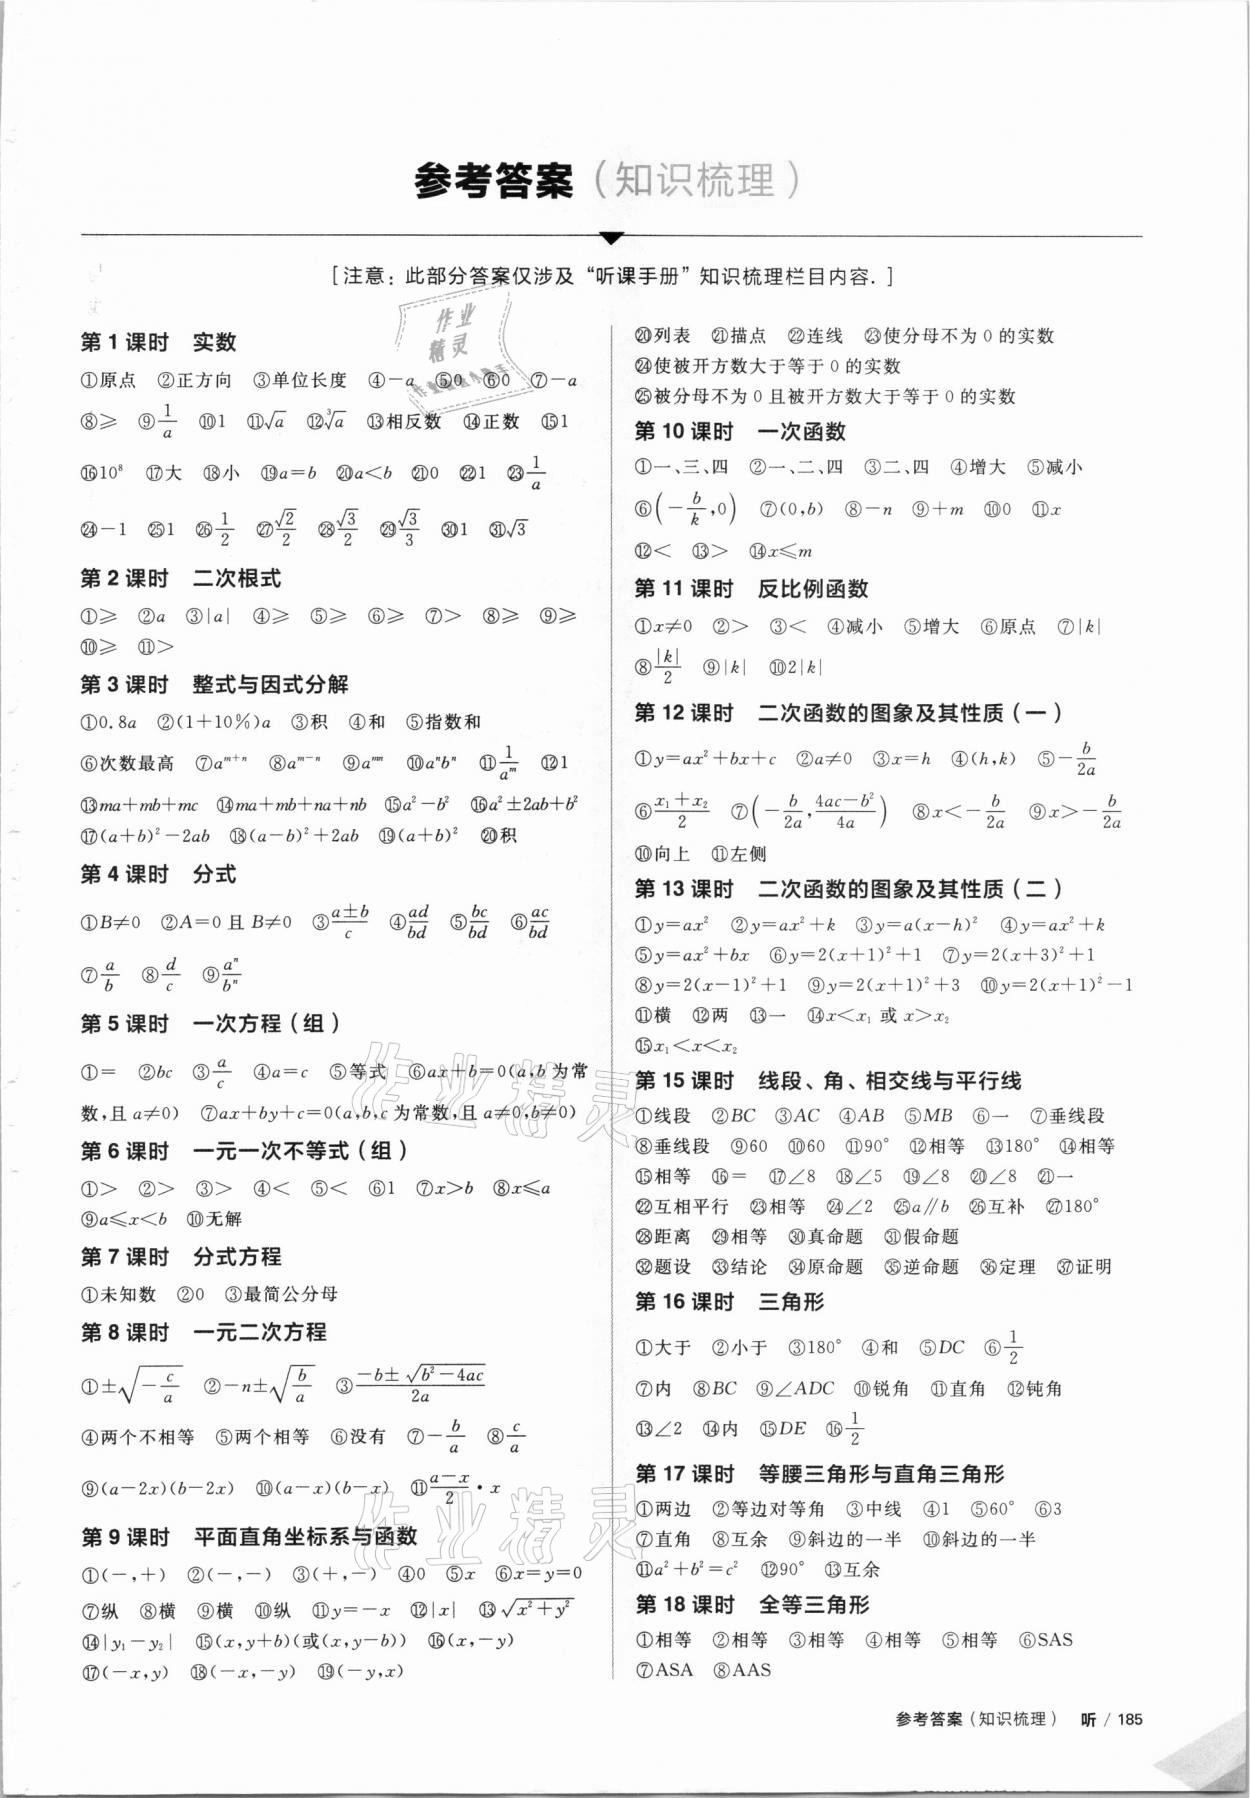 参考答案（知识梳理）
［注意：此部分答案仅涉及“听课手册”知识梳理栏目内容.］
第 1 课时　实数
①原点　②正方向　③单位长度　④－a　⑤0　⑥0　⑦－a
⑧≥　⑨1/a　⑩1　⑪√a　⑫∛a　⑬相反数　⑭正数　⑮1
⑯10⁸　⑰大　⑱小　⑲a＝b　⑳a＜b　㉑0　㉒1　㉓1/a
㉔－1　㉕1　㉖1/2　㉗√2/2　㉘√3/2　㉙√3/3　㉚1　㉛√3
第 2 课时　二次根式
①≥　②a　③|a|　④≥　⑤≥　⑥≥　⑦＞　⑧≥　⑨≥
⑩≥　⑪＞
第 3 课时　整式与因式分解
①0.8a　②(1＋10%)a　③积　④和　⑤指数和
⑥次数最高　⑦aᵐ⁺ⁿ　⑧aᵐ⁻ⁿ　⑨aᵐⁿ　⑩aⁿbⁿ　⑪1/aᵐ　⑫1
⑬ma＋mb＋mc　⑭ma＋mb＋na＋nb　⑮a²－b²　⑯a²±2ab＋b²
⑰(a＋b)²－2ab　⑱(a－b)²＋2ab　⑲(a＋b)²　⑳积
第 4 课时　分式
①B≠0　②A＝0 且 B≠0　③(a±b)/c　④ad/bd　⑤bc/bd　⑥ac/bd
⑦a/b　⑧d/c　⑨aⁿ/bⁿ
第 5 课时　一次方程（组）
①＝　②bc　③a/c　④a＝c　⑤等式　⑥ax＋b＝0(a,b 为常
数,且 a≠0)　⑦ax＋by＋c＝0(a,b,c 为常数,且 a≠0,b≠0)
第 6 课时　一元一次不等式（组）
①＞　②＞　③＞　④＜　⑤＜　⑥1　⑦x＞b　⑧x≤a
⑨a≤x＜b　⑩无解
第 7 课时　分式方程
①未知数　②0　③最简公分母
第 8 课时　一元二次方程
①±√(－c/a)　②－n±√(b/a)　③(－b±√(b²－4ac))/2a
④两个不相等　⑤两个相等　⑥没有　⑦－b/a　⑧c/a
⑨(a－2x)(b－2x)　⑩(a－x)(b－x)　⑪(a－x)/2·x
第 9 课时　平面直角坐标系与函数
①(－,＋)　②(－,－)　③(＋,－)　④0　⑤x　⑥x＝y＝0
⑦纵　⑧横　⑨横　⑩纵　⑪y＝－x　⑫|x|　⑬√(x²＋y²)
⑭|y₁－y₂|　⑮(x,y＋b)(或(x,y－b))　⑯(x,－y)
⑰(－x,y)　⑱(－x,－y)　⑲(－y,x)
⑳列表　㉑描点　㉒连线　㉓使分母不为 0 的实数
㉔使被开方数大于等于 0 的实数
㉕被分母不为 0 且被开方数大于等于 0 的实数
第 10 课时　一次函数
①一、三、四　②一、二、四　③二、四　④增大　⑤减小
⑥(－b/k,0)　⑦(0,b)　⑧－n　⑨＋m　⑩0　⑪x
⑫＜　⑬＞　⑭x≤m
第 11 课时　反比例函数
①x≠0　②＞　③＜　④减小　⑤增大　⑥原点　⑦|k|
⑧|k|/2　⑨|k|　⑩2|k|
第 12 课时　二次函数的图象及其性质（一）
①y＝ax²＋bx＋c　②a≠0　③x＝h　④(h,k)　⑤－b/2a
⑥(x₁＋x₂)/2　⑦(－b/2a,(4ac－b²)/4a)　⑧x＜－b/2a　⑨x＞－b/2a
⑩向上　⑪左侧
第 13 课时　二次函数的图象及其性质（二）
①y＝ax²　②y＝ax²＋k　③y＝a(x－h)²　④y＝ax²＋k
⑤y＝ax²＋bx　⑥y＝2(x＋1)²＋1　⑦y＝2(x＋3)²＋1
⑧y＝2(x－1)²＋1　⑨y＝2(x＋1)²＋3　⑩y＝2(x＋1)²－1
⑪横　⑫两　⑬一　⑭x＜x₁ 或 x＞x₂
⑮x₁＜x＜x₂
第 15 课时　线段、角、相交线与平行线
①线段　②BC　③AC　④AB　⑤MB　⑥一　⑦垂线段
⑧垂线段　⑨60　⑩60　⑪90°　⑫相等　⑬180°　⑭相等
⑮相等　⑯＝　⑰∠8　⑱∠5　⑲∠8　⑳∠8　㉑一
㉒互相平行　㉓相等　㉔∠2　㉕a∥b　㉖互补　㉗180°
㉘距离　㉙相等　㉚真命题　㉛假命题
㉜题设　㉝结论　㉞原命题　㉟逆命题　㊱定理　㊲证明
第 16 课时　三角形
①大于　②小于　③180°　④和　⑤DC　⑥1/2
⑦内　⑧BC　⑨∠ADC　⑩锐角　⑪直角　⑫钝角
⑬∠2　⑭内　⑮DE　⑯1/2
第 17 课时　等腰三角形与直角三角形
①两边　②等边对等角　③中线　④1　⑤60°　⑥3
⑦直角　⑧互余　⑨斜边的一半　⑩斜边的一半
⑪a²＋b²＝c²　⑫90°　⑬互余
第 18 课时　全等三角形
①相等　②相等　③相等　④相等　⑤相等　⑥SAS
⑦ASA　⑧AAS
参考答案（知识梳理）　听 / 185
作业
精灵
作业精灵
作业精灵